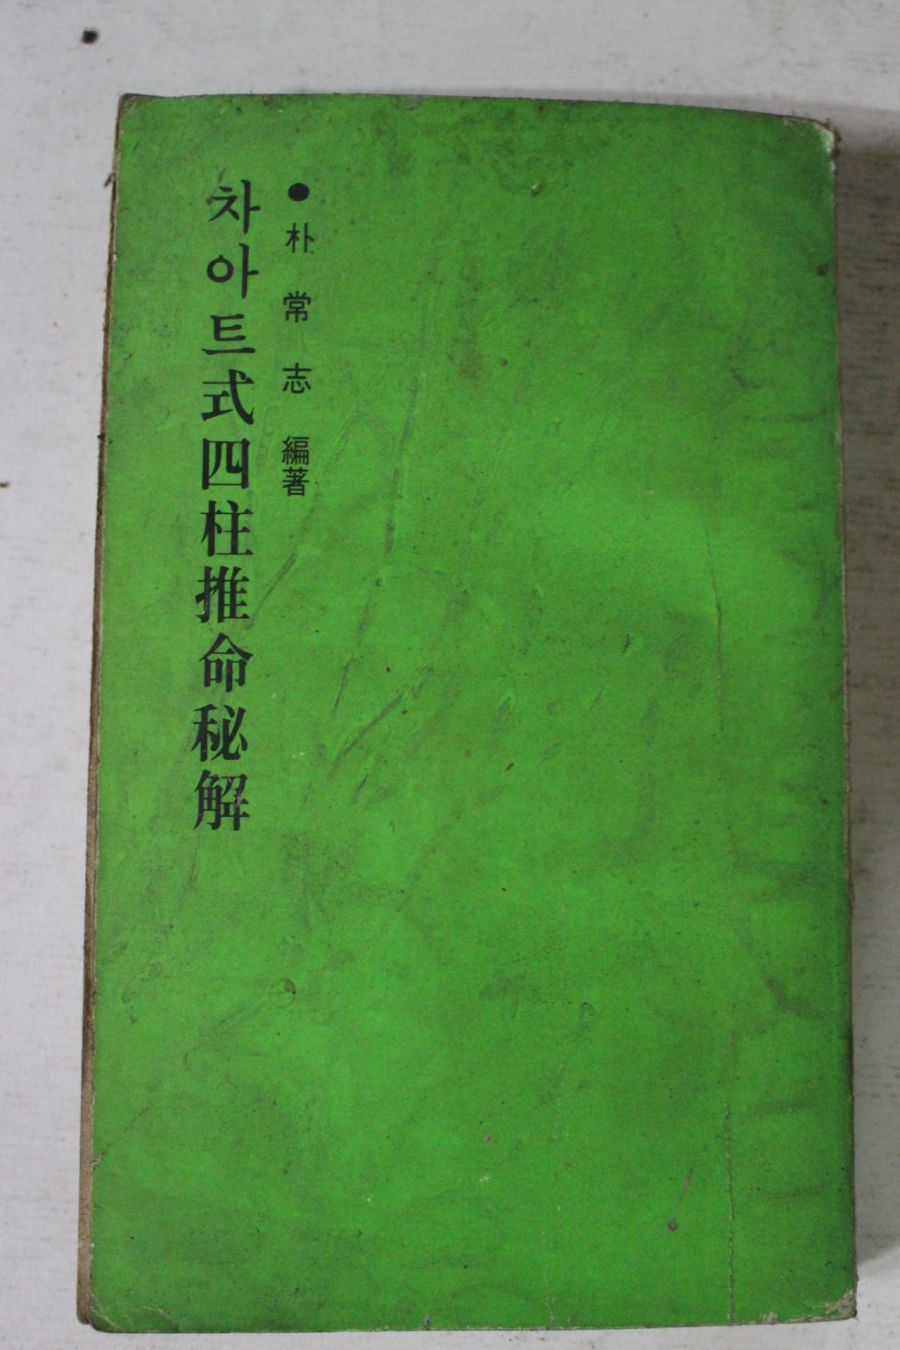 ●朴常志 編著
차아트式四柱推命秘解